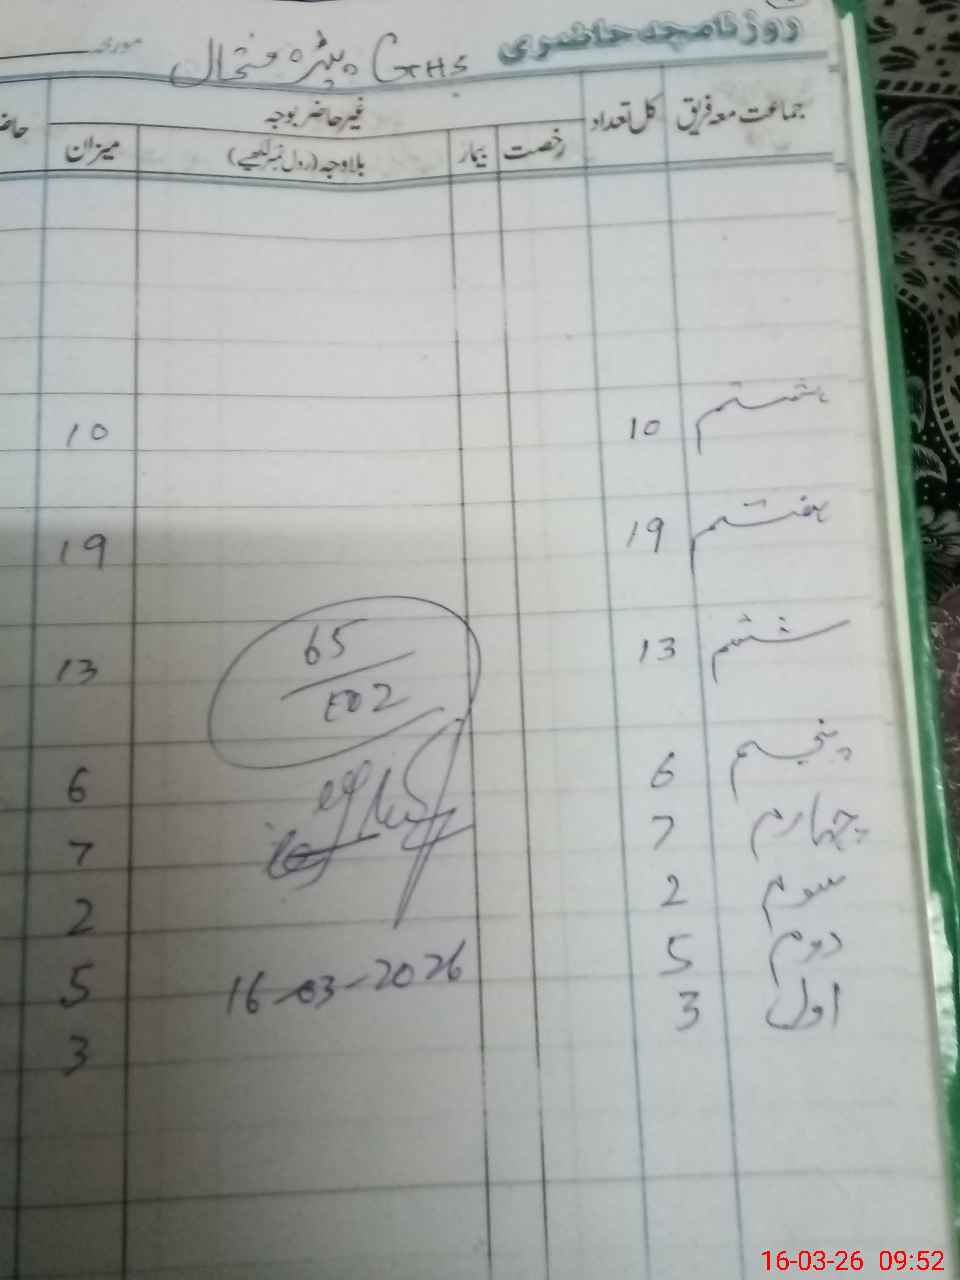 روزنامچہ حاضری GHS مورخہ
جماعت معہ فریق کل تعداد غیر حاضر بوجہ
رخصت بیمار بلاوجہ (رول نمبر لکھیے) میزان
ہشتم 10 10
ہفتم 19 19
ششم 13 13
65
پنجم 6 6
چہارم 7 7
سوم 2 2
دوم 5 16-03-2026 5
اول 3 3
16-03-26 09:52